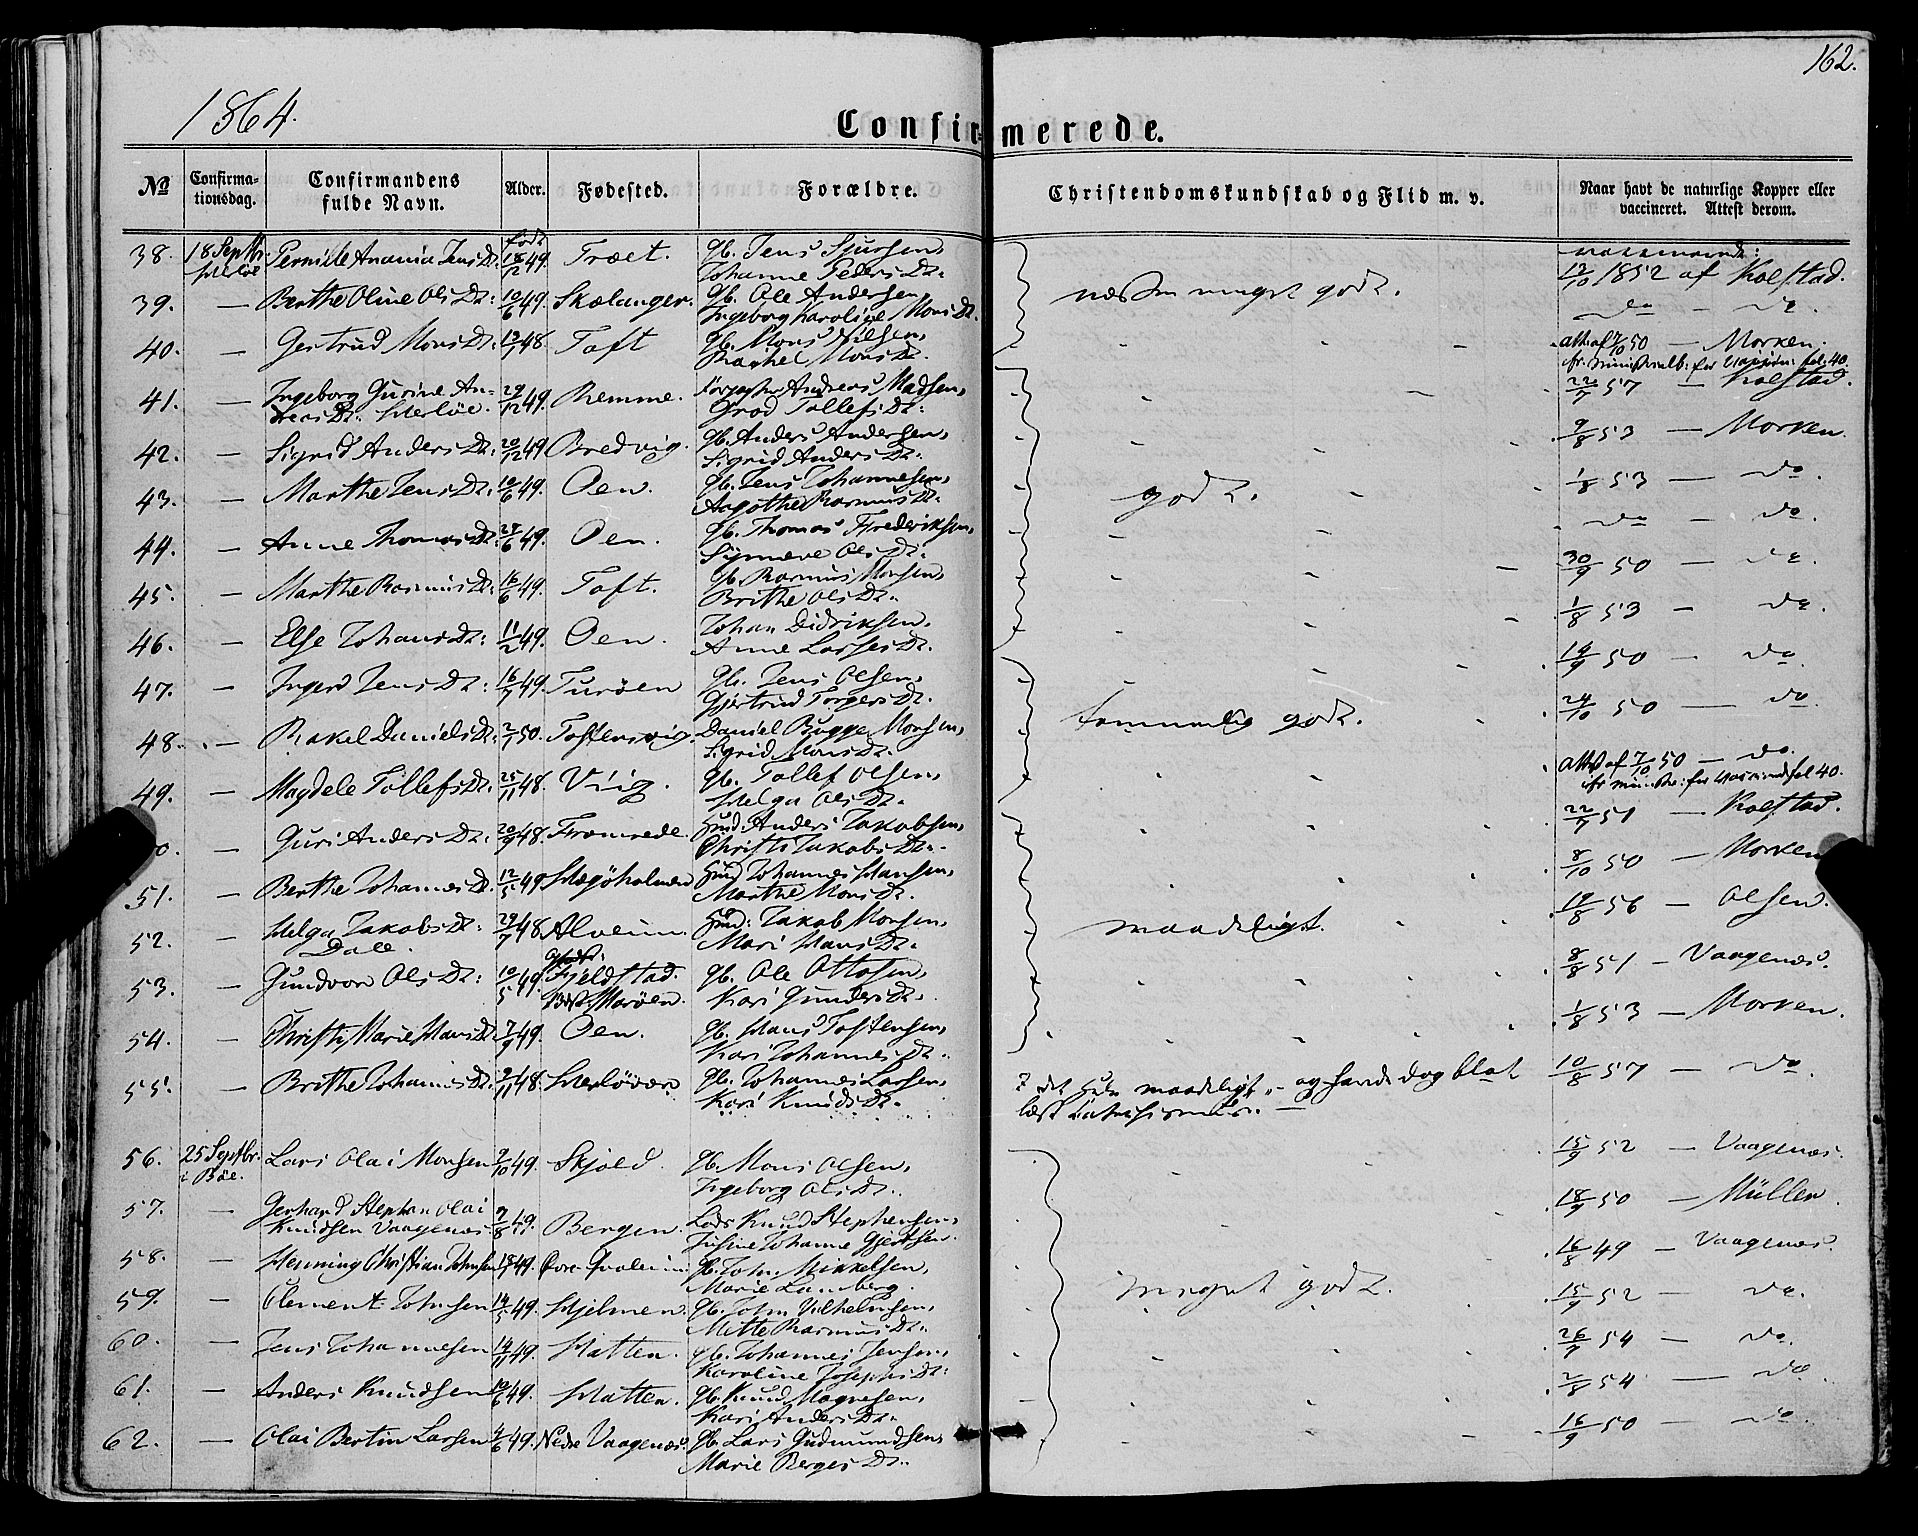 162.
1864.
Confirmerede.
No
Confirma-
tionsdag.
Confirmandens
fulde Navn.
Alder.
Fødested.
Forældre.
Christendomskundskab og Flid m. v.
Naar havt de naturlige Kopper eller
vaccineret. Attest derom.
38. 18 Septbr. Pernille Anania Jens Dt. født 18/12 49. Træet. Gb. Jens Sjursen,
Johanne Peders Dt. 13/10 1852 af Kolstad.
39. — Berthe Oline Ols Dt: 10/6 49. Skælanger. Gb. Ole Andersen,
Ingeborg Karoline Mons Dt. næsten meget godt. do — do.
40. — Gertrud Mons Dt: 13/1 48. Toft Gb. Mons Nilsen,
Rachel Mons Dt. att. af 7/10 50 — Morken.
41. — Ingeborg Gurine An-
dreas Dt: Herløe. 29/12 49. Remme. Andreas Madsen,
Groe Tollefs Dt: 22/7 57 — Kolstad.
42. — Sigrid Anders Dt: 20/12 49 Bredvig. Gb. Anders Andersen,
Sigrid Anders Dt: 9/8 53 — Morken.
43. — Marthe Jens Dt. 10/6 49. Oen. Gb. Jens Johannesen,
Aagothe Rasmus Dt. godt. 1/8 53 — do.
44. — Anne Thomas Dt: 24/6 49. Oen. Gb. Thomas Frederiksen,
Synneve Ols Dt. do — do.
45. — Marthe Rasmus Dt: 16/6 49. Toft. Gb. Rasmus Monsen,
Brithe Ols Dt. 30/9 50 — do.
46. — Else Johans Dt: 11/2 49. Oen. Johan Didriksen,
Anne Lasses Dt. 1/8 53 — do.
47. — Inger Jens Dt: 16/7 49. Turøen Gb. Jens Olsen,
Gjertrud Torgers Dt. 19/9 50 — do.
48. — Rakel Daniels Dt: 2/1 50. Toftensvig. Daniel Bugge Monsen,
Sigrid Mons Dt. temmelig godt. 24/10 50 — do
49. — Magdele Tollefs Dt: 25/11 48. Viig. Gb. Tollef Olsen,
Helga Ols Dt. att. af 7/10 50 — do.
— Guri Anders Dt: 20/9 48. Fromrede. Huusmd: Anders Jakobsen,
Christi Jakobs Dt. 22/7 51 — Kolstad.
51. — Berthe Johannes Dt. 12/5 49 Hægøholmen Johannes Hansen,
Marthe Mons Dt. 8/10 50 — Morken
52. — Helga Jakobs Dt.
Dale. 29/7 48. Alveim. Jakob Monsen,
Mari Hans Dt. maadeligt. 19/8 56 — Olsen.
53. — Gundvor Ols Dt: 10/5 49. Fjeldstad.
Marøen. Gb. Ole Ottosen,
Kari Gunders Dt. 8/8 51 — Vaagenæs.
54. — Christi Marie Hans Dt. 7/9 49. Oen. Gb. Hans Tostensen,
Kari Johannes Dt. 1/8 53 — Morken.
55. — Brithe Johannis Dt. 9/11 48. Herløvær Gb. Johannes Larsen,
Kari Knuds Dt. det Hele maadeligt, og havde dog blot
læst Katechismus. — 10/8 57 — do.
56. 25 Septbr. i Böe. Lars Olai Monsen 2/10 49. Skjold. Gb. Mons Olsen,
Ingeborg Ols Dt. 15/9 52 — Vaagenæs.
57. Gerhard Stephan Olai
Knudsen Vaagenæs. 9/8 49. Bergen. Lods Knud Stephensen,
Johanne Gjertsen. 18/9 50 — Müller.
58. — Henning Christian Johnsen 49. Øvre Gb. John Mikkelsen,
Marie Lamberg. 16/8 49 — Vaagenæs.
59. — Clement Johnsen 14/5 49. Hjelmen. Gb. John Vilhelmsen,
Mette Rasmus Dt. meget godt. 15/9 52 — do.
60. — Jens Johannesen 14/11 49. Hatten. Gb. Johannes Jensen,
Karoline Josephs Dt: 26/7 54 — do.
61. — Anders Knudsen 10/6 49. Hatten. Gb. Knud Magnesen,
Kari Anders Dt. 2/8 54 — do
62. — Olai Bertin Larsen 4/6 49. Nedre Vaagenæs. Gb. Lars Gudmundsen,
Marie Berges Dt. 16/9 50 — do.